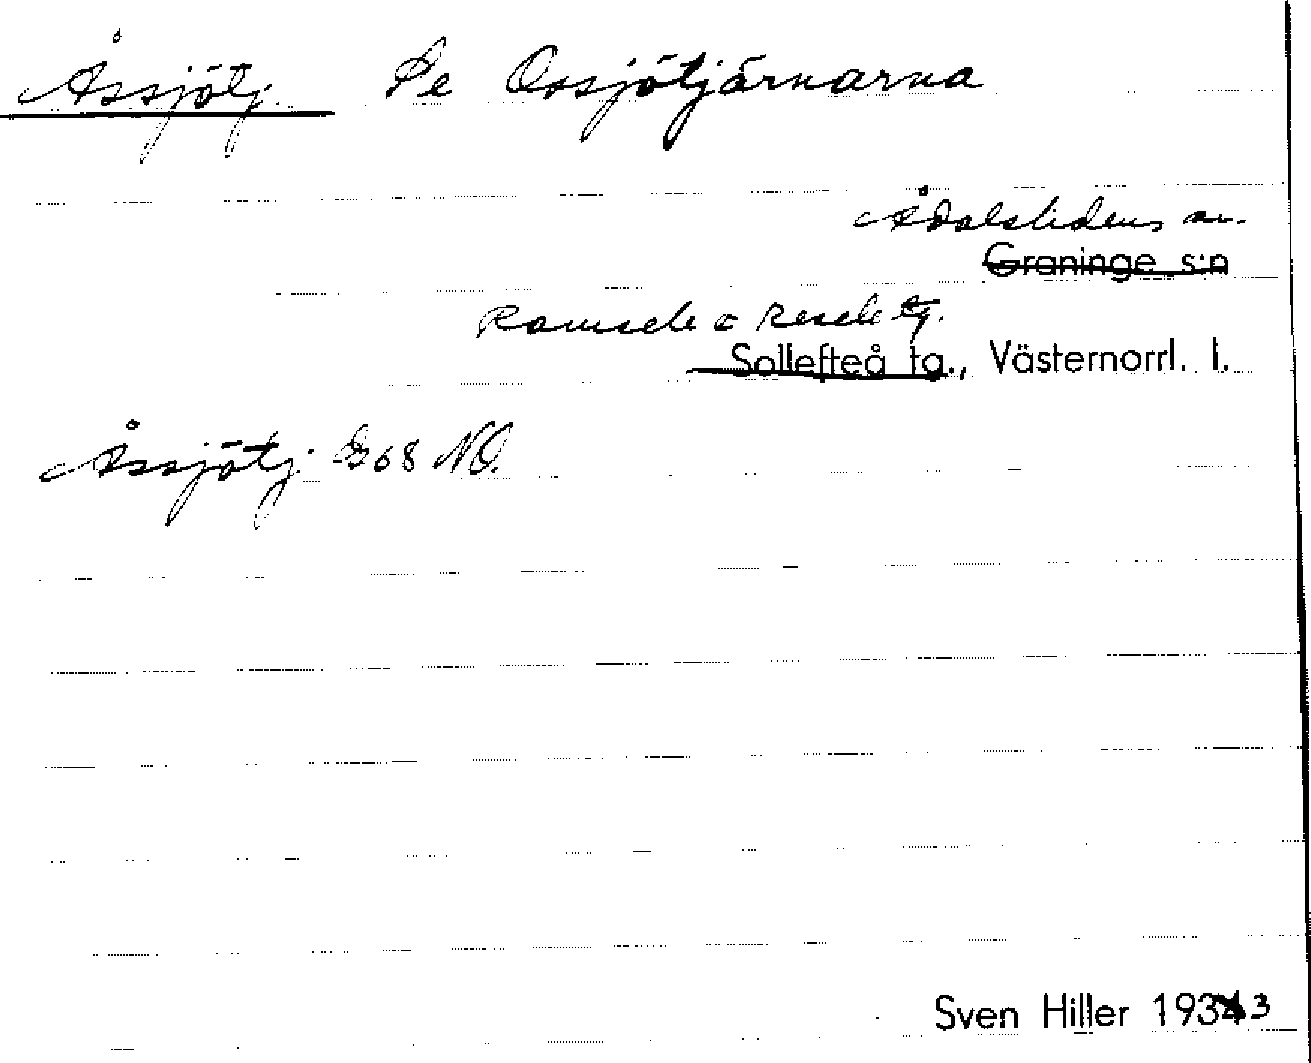 Åssjötj. Se Ossjötjärnarna
Ådalslidens sn.
Graninge s:n
Ramsele o Resele tg.
Sollefteå tg., Västernorrl. l.
Åssjötj. G68 NO.
Sven Hiller 1933